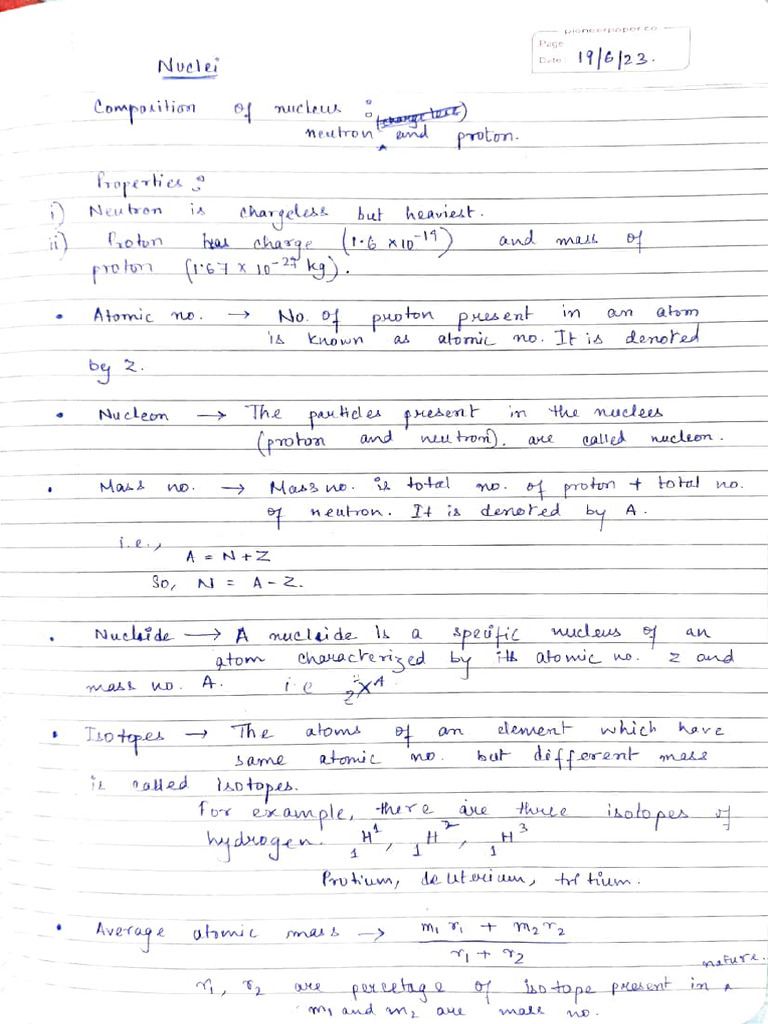 pioneerpaper.co
Page
Date 19/6/23.
Nuclei
Composition of nucleus :
(chargeless)
neutron and proton.
Properties :
i) Neutron is chargeless but heaviest.
ii) Proton has charge (1.6 × 10⁻¹⁹) and mass of
proton (1.67 × 10⁻²⁷ kg).
• Atomic no. → No. of proton present in an atom
is known as atomic no. It is denoted
by Z.
• Nucleon → The particles present in the nucleus
(proton and neutron). are called nucleon.
• Mass no. → Mass no. is total no. of proton + total no.
of neutron. It is denoted by A.
i.e.,
A = N + Z
So, N = A - Z.
• Nuclide → A nuclide is a specific nucleus of an
atom characterized by its atomic no. Z and
mass no. A. i.e ZXᴬ.
• Isotopes → The atoms of an element which have
same atomic no. but different mass
is called isotopes.
For example, there are three isotopes of
hydrogen. ₁H¹, ₁H², ₁H³
Protium, deuterium, tritium.
• Average atomic mass → m₁r₁ + m₂r₂
r₁ + r₂
nature.
r₁, r₂ are percetage of isotope present in a
m₁ and m₂ are mass no.